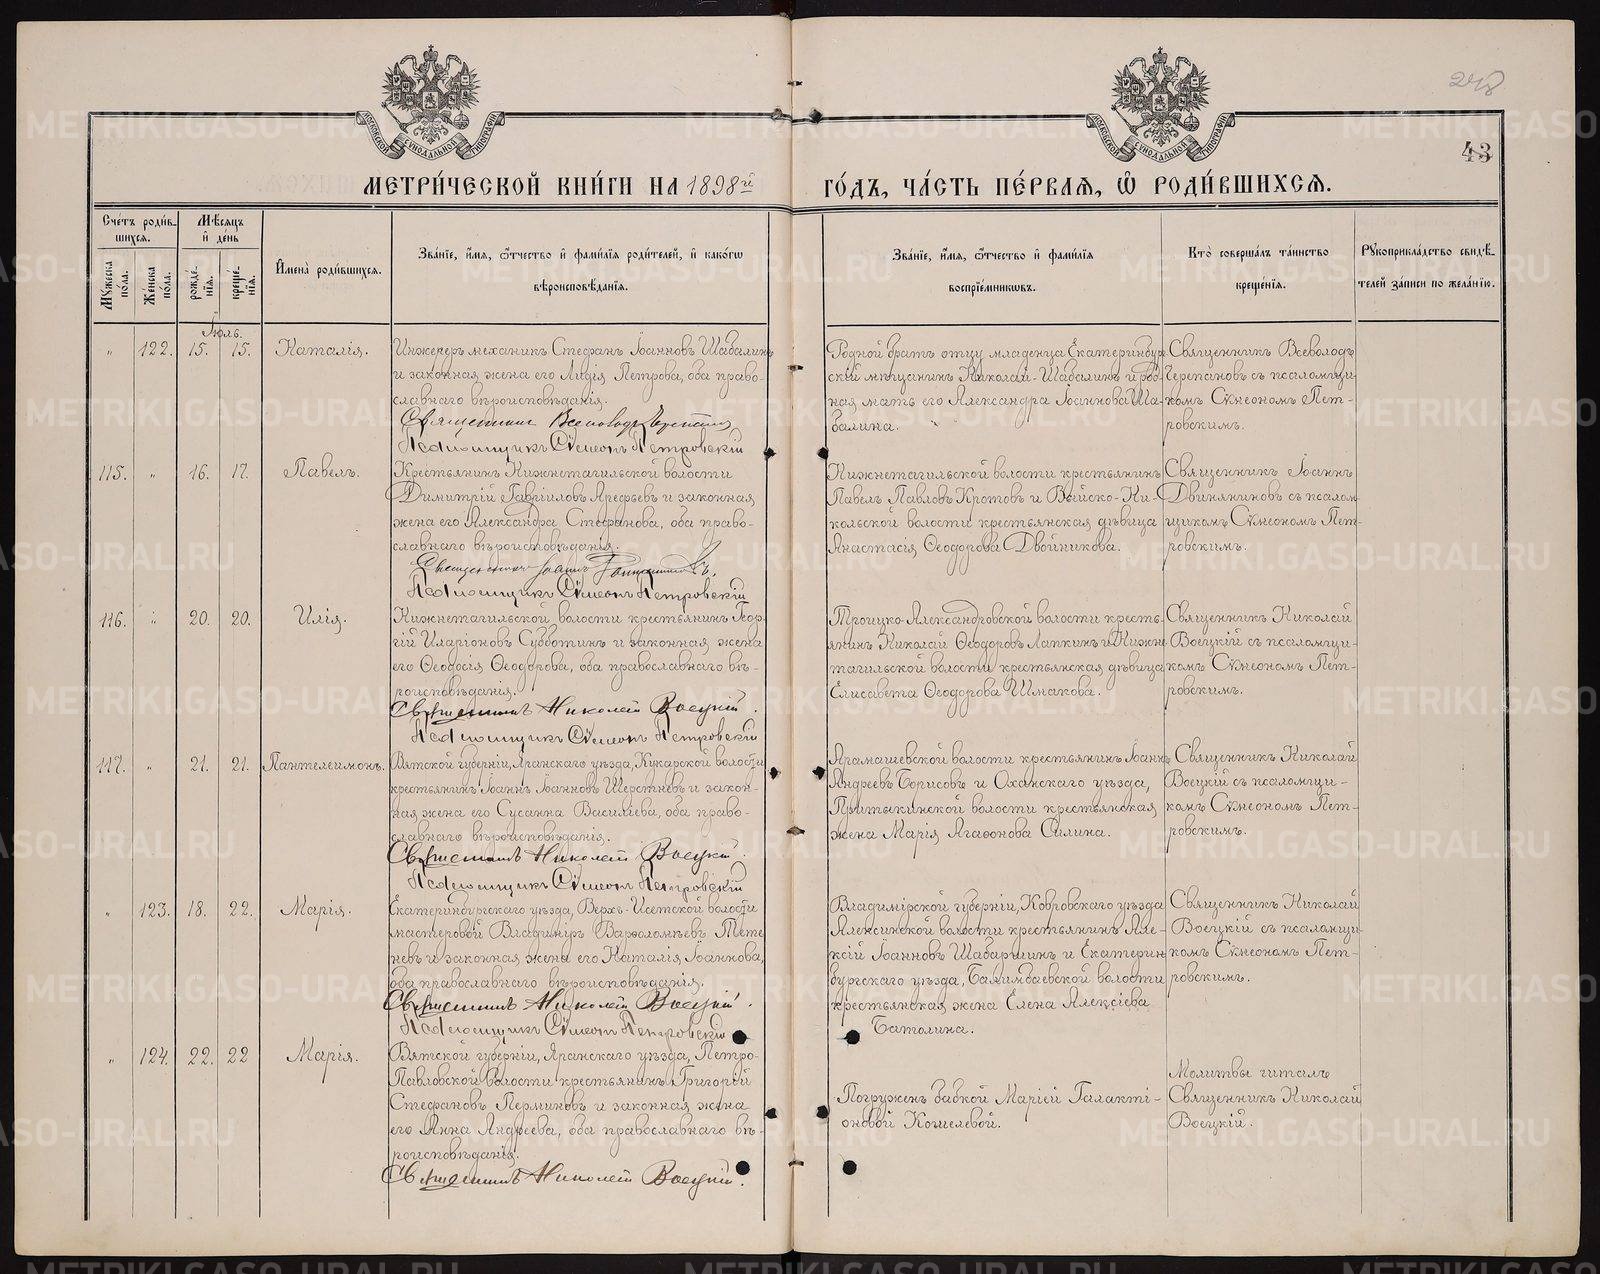 248
43
МОСКОВСКОЙ СѴНОДАЛЬНОЙ ТИПОГРАФІИ
МОСКОВСКОЙ СѴНОДАЛЬНОЙ ТИПОГРАФІИ
МЕТРИ́ЧЕСКОЙ КНИ́ГИ НА 1898й ГО́ДЪ, ЧА́СТЬ ПЕ́РВАѦ, Ѿ РОДИ́ВШИХСѦ.
Сче́тъ роди́в-
шихсѧ.
Мꙋжеска по́ла.
Же́нска по́ла.
Мѣ́сѧцъ
и҆ де́нь
рожде́-
нїѧ.
креще́-
нїѧ.
И҆мена̀ роди́вшихсѧ.
Зва́нїе, и҆́мѧ, ѻ҆́тчество и҆ фами́лїѧ роди́телей, и҆ како́гѡ
вѣроисповѣ́данїѧ.
Зва́нїе, и҆́мѧ, ѻ҆́тчество и҆ фами́лїѧ
воспрїе́мникѡвъ.
Кто̀ соверша́лъ та́инство
креще́нїѧ.
Рꙋкоприкла́дство свидѣ́-
телей за́писи по жела́нїю.
Іюль.
„ 122. 15. 15. Наталія.
Инженеръ механикъ Стефанъ Іоанновъ Шабалинъ
и законная жена его Лидія Петрова, оба право-
славнаго вѣроисповѣданія.
Священникъ Всеволодъ Черепановъ
Псаломщикъ Сѵмеонъ Петровскій
Родной братъ отцу младенца Екатеринбур-
скій мѣщанинъ Николай Шабалинъ и род-
ная мать его Александра Іоаннова Ша-
балина.
Священникъ Всеволодъ
Черепановъ съ псаломщи-
комъ Сѵмеономъ Пет-
ровскимъ.
115. „ 16. 17. Павелъ.
Крестьянинъ Нижнетагильской волости
Димитрій Гавріиловъ Арефьевъ и законная
жена его Александра Стефанова, оба право-
славнаго вѣроисповѣданія.
Священникъ Іоаннъ Двиняниновъ.
Псаломщикъ Сѵмеонъ Петровскій
Нижнетагильской волости крестьянинъ
Павелъ Павловъ Кротовъ и Выйско-Ни-
кольской волости крестьянская дѣвица
Анастасія Ѳеодорова Двойникова.
Священникъ Іоаннъ
Двиняниновъ съ псалом-
щикомъ Сѵмеономъ Пет-
ровскимъ.
116. „ 20. 20. Илія.
Нижнетагильской волости крестьянинъ Геор-
гій Иларіоновъ Субботинъ и законная жена
его Ѳеодосія Ѳеодорова, оба православнаго вѣ-
роисповѣданія.
Священникъ Николай Воецкій.
Псаломщикъ Сѵмеонъ Петровскій
Троицко-Александровской волости кресть-
янинъ Николай Ѳеодоровъ Лапкинъ и Нижне-
тагильской волости крестьянская дѣвица
Елисавета Ѳеодорова Шмакова.
Священникъ Николай
Воецкій съ псаломщи-
комъ Сѵмеономъ Пет-
ровскимъ.
117. „ 21. 21. Пантелеимонъ.
Вятской губерніи, Яранскаго уѣзда, Кукарской волости
крестьянинъ Іоаннъ Іоанновъ Шерстневъ и закон-
ная жена его Сусанна Василіева, оба право-
славнаго вѣроисповѣданія.
Священникъ Николай Воецкій.
Псаломщикъ Сѵмеонъ Петровскій
Арамашевской волости крестьянинъ Іоаннъ
Андреевъ Борисовъ и Оханскаго уѣзда,
Притыкинской волости крестьянская
жена Марія Агаѳонова Силина.
Священникъ Николай
Воецкій съ псаломщи-
комъ Сѵмеономъ Пет-
ровскимъ.
„ 123. 18. 22. Марія.
Екатеринбургскаго уѣзда, Верхъ-Исетской волости
мастеровой Владиміръ Варѳоломѣевъ Тете-
невъ и законная жена его Наталія Іоаннова,
оба православнаго вѣроисповѣданія.
Священникъ Николай Воецкій.
Псаломщикъ Сѵмеонъ Петровскій
Владимірской губерніи, Ковровскаго уѣзда
Алексинской волости крестьянинъ Але-
ксій Іоанновъ Шабаршинъ и Екатерин-
бургскаго уѣзда, Балимбаевской волости
крестьянская жена Елена Алексіева
Батолина.
Священникъ Николай
Воецкій съ псаломщи-
комъ Сѵмеономъ Пет-
ровскимъ.
„ 124. 22. 22 Марія.
Вятской губерніи, Яранскаго уѣзда, Петро-
Павловской волости крестьянинъ Григорій
Стефановъ Перминовъ и законная жена
его Анна Андреева, оба православнаго вѣ-
роисповѣданія.
Священникъ Николай Воецкій.
Погруженъ бабкой Маріей Галакті-
оновой Кошелевой.
Молитвы читалъ
Священникъ Николай
Воецкій.
METRIKI.GASO-URAL.RU